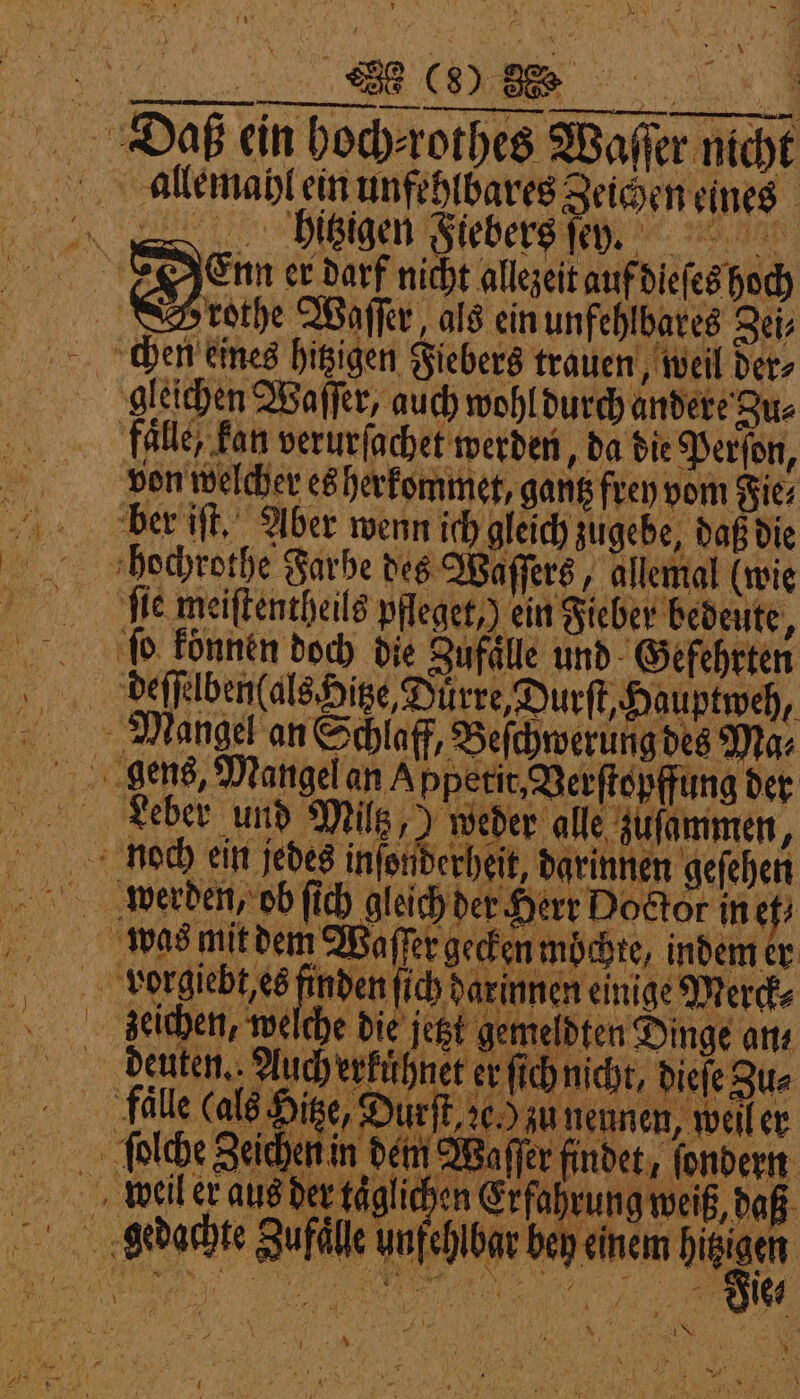 (8)
Daß ein hoch-rothes Waſſer nicht
allemahl ein unfehlbares Zeichen eines
hitzigen Fiebers ſey.
DEnn er darf nicht allezeit auf dieſes hoch
rothe Waſſer, als ein unfehlbares Zei-
chen eines hitzigen Fiebers trauen, weil der-
gleichen Waſſer, auch wohl durch andere Zu-
faͤlle, kan verurſachet werden, da die Perſon,
von welcher es herkommet, gantz frey vom Fie-
ber iſt. Aber wenn ich gleich zugebe, daß die
hochrothe Farbe des Waſſers, allemal (wie
ſie meiſtentheils pfleget,) ein Fieber bedeute,
ſo koͤnnen doch die Zufaͤlle und Gefehrten
deſſelben (als Hitze, Duͤrre, Durſt, Hauptweh,
Mangel an Schlaff, Beſchwerung des Ma-
gens, Mangel an Appetit, Verſtopffung der
Leber und Miltz,) weder alle zuſammen,
noch ein jedes inſonderheit, darinnen geſehen
werden, ob ſich gleich der Herr Doctor in et-
was mit dem Waſſer gecken moͤchte, indem er
vorgiebt, es finden ſich darinnen einige Merck-
zeichen, welche die jetzt gemeldten Dinge an-
deuten. Auch erkuͤhnet er ſich nicht, dieſe Zu-
faͤlle (als Hitze, Durſt, ꝛc.) zu nennen, weil er
ſolche Zeichen in dem Waſſer findet, ſondern
weil er aus der taͤglichen Erfahrung weiß, daß
gedachte Zufaͤlle unfehlbar bey einem hitzigen
Fie-